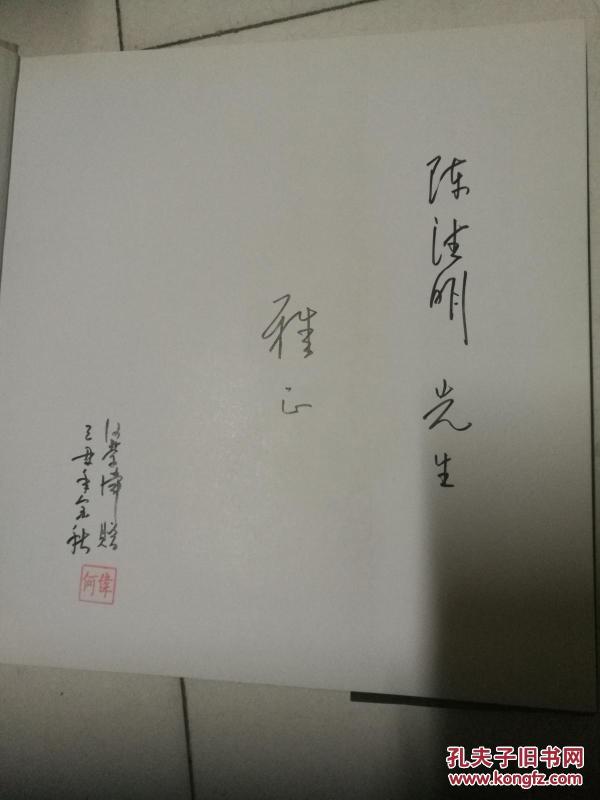 陈 明 先生
雅正
何 偉 赠
己丑年金秋
何偉
孔夫子旧书网
www.kongfz.com